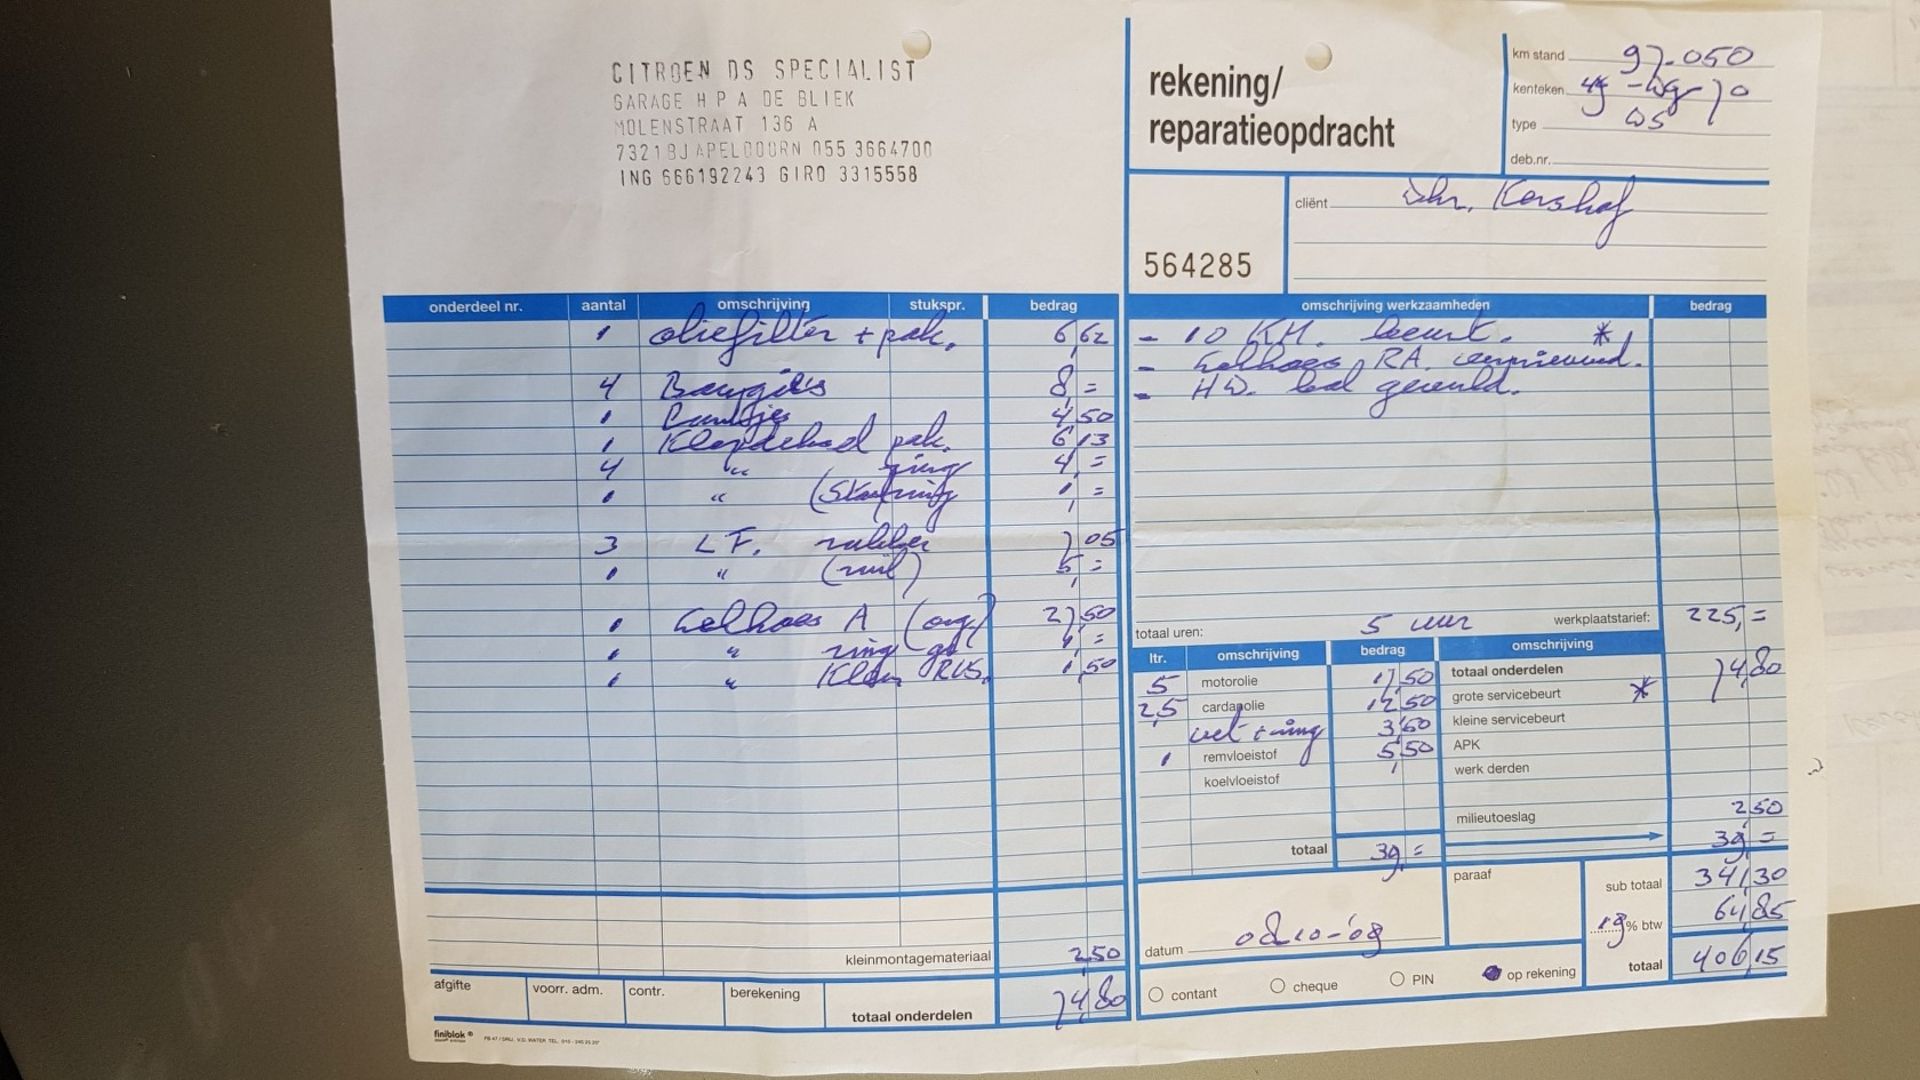 CITROEN DS SPECIALIST
GARAGE H P A DE BLIEK
MOLENSTRAAT 136 A
7321BJ APELDOORN 055 3664700
ING 666192243 GIRO 3315558
rekening/
reparatieopdracht
km stand 97.050
kenteken
type DS
deb.nr.
cliënt Dhr. Kershof
564285
onderdeel nr. aantal omschrijving stukspr. bedrag
1 oliefilter + pak. 6,62
4 Bougies 8,=
1 Puntjes 4,50
1 Klepdeksel pak. 6,13
4 " ring 4,=
1 " 1,=
3 L F. rubber 7,05
1 " (ruil) 5,=
1 Gelhoes A (org) 27,50
1 " ring 1,=
1 " Klem RVS. 1,50
kleinmontagemateriaal 2,50
afgifte voorr. adm. contr. berekening totaal onderdelen 74,80
finiblok ®
omschrijving werkzaamheden bedrag
- 10 KM. beurt. *
- Gelhoes RA. vernieuwd.
- HW. bol gevuld.
totaal uren: 5 uur werkplaatstarief: 225,=
ltr. omschrijving bedrag omschrijving
5 motorolie 17,50
2,5 cardanolie 12,50
vet + ring 3,50
1 remvloeistof 5,50
koelvloeistof
totaal 39,=
totaal onderdelen 74,80
grote servicebeurt *
kleine servicebeurt
APK
werk derden
milieutoeslag 2,50
39,=
paraaf
sub totaal 341,30
19 % btw 64,85
totaal 406,15
datum 08-10-'08
contant cheque PIN op rekening